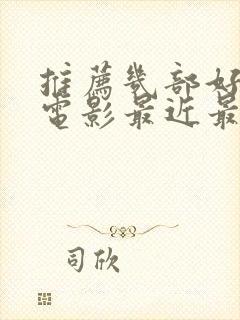 推薦幾部好
電影最近最
司欣